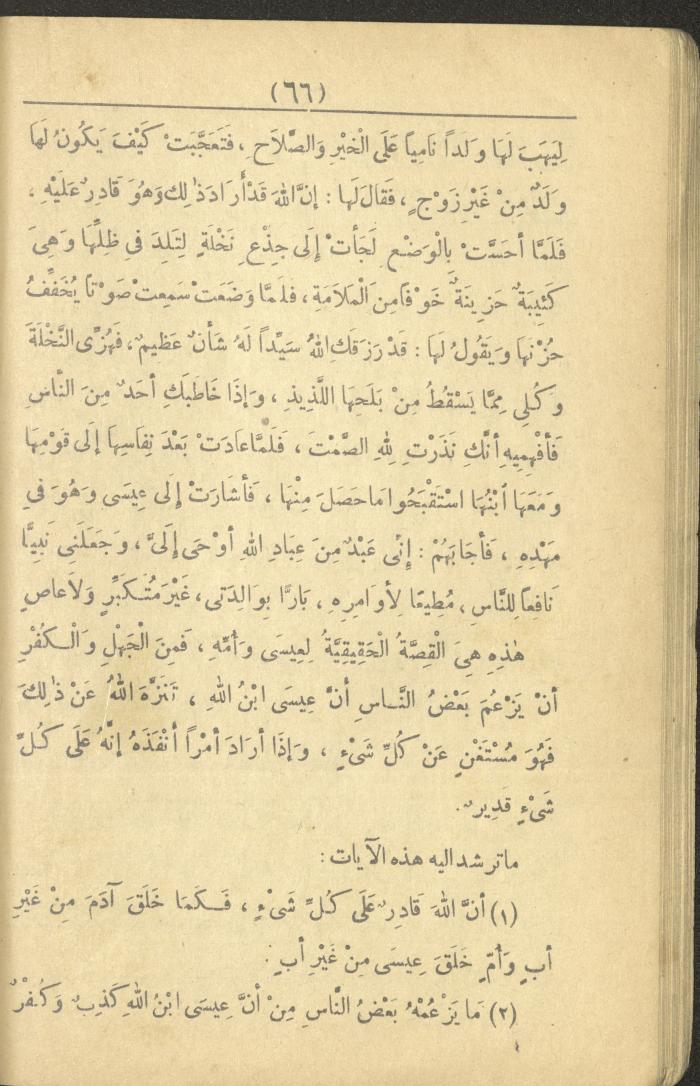 (٦٦)
لِيَهَبَ لَهَا وَلَداً نَامِياً عَلَى الْخَيْرِ وَالصَّلَاحِ ، فَتَعَجَّبَتْ كَيْفَ يَكُونُ لَهَا
وَلَدٌ مِنْ غَيْرِ زَوْجٍ ، فَقَالَ لَهَا : إِنَّ اللهَ قَدْ أَرَادَ ذٰلِك وَهُوَ قَادِرٌ عَلَيْهِ ،
فَلَمَّا أَحَسَّتْ بِالْوَضْعِ لَجَأَتْ إِلَى جِذْعِ نَخْلَةٍ لِتَلِدَ فى ظِلِّهَا وَهِىَ
كَئِيبَةٌ حَزِينَةٌ خَوْفًا مِنَ الْمَلَامَةِ ، فلَمَّا وَضَعَتْ سَمِعتْ صَوْتًا يُخَفِّفُ
حُزْنَهَا وَيَقُولُ لَهَا : قَدْ رَزَقَكِ اللهُ سَيِّداً لَهُ شَأْنٌ عَظِيمٌ ، فَهُزِّى النَّخْلَةَ
وَكُلِى مِمَّا يَسْقُطُ مِنْ بَلَحِهَا اللَّذِيذِ ، وَإِذَا خَاطَبَكِ أَحَدٌ مِنَ النَّاسِ
فَأَفْهِمِيهِ أَنَّكِ نَذَرْتِ لِلهِ الصَّمْتَ ، فَلَمَّا عَادَتْ بَعْدَ نِفَاسِهَا إِلَى قَوْمِهَا
وَمَعَهَا ابْنُهَا اسْتَقْبَحُوا مَا حَصَلَ مِنْهَا ، فَأَشَارَتْ إِلَى عِيسَى وَهُوَ فِي
مَهْدِهِ ، فَأَجَابَهُمْ : إِنِّى عَبْدٌ مِنَ عِبَادِ اللهِ أَوْحَى إِلَىَّ ، وَجَعَلَنِى نَبِيًّا
نَافِعاً لِلنَّاسِ ، مُطِيعًا لِأَوَامِرِهِ ، بَارًّا بِوَالِدَتِى ، غَيْرَ مُتَكَبِّرٍ وَلَا عاصٍ
هٰذِهِ هِىَ الْقِصَّةُ الْحَقِيقِيَّةُ لِعِيسَى وَأُمِّهِ ، فَمِنَ الْجَهْلِ وَالْكُفْرِ
أَنْ يَزْعُمَ بَعْضُ النَّاسِ أَنَّ عِيسَى ابْنُ اللهِ ، تَنَزَّهَ اللهُ عَنْ ذٰلِكَ
فَهُوَ مُسْتَغْنٍ عَنْ كُلِّ شَىْءٍ ، وَإِذَا أَرَادَ أَمْراً أَنْفَذَهُ إِنَّهُ عَلَى كُلِّ
شَىْءٍ قَدِيرٌ .
ماترشد اليه هذه الآيات :
(١) أَنَّ اللهَ قَادِرٌ عَلَى كُلِّ شَىْءٍ ، فَكَمَا خَلَقَ آدَمَ مِنْ غَيْرِ
أَبٍ وَأُمٍّ خَلَقَ عِيسَى مِنْ غَيْرِ أَبٍ .
(٢) مَا يَزْعُمُهُ بَعْضُ النَّاسِ مِنْ أَنَّ عِيسَى ابْنُ اللهِ كَذِبٌ وَكُفْرٌ